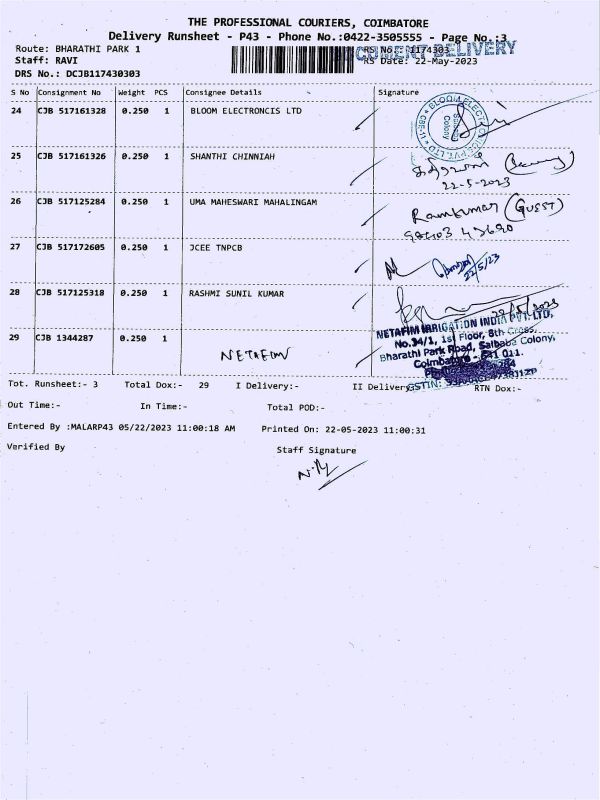 THE PROFESSIONAL COURIERS, COIMBATORE
Delivery Runsheet - P43 - Phone No.:0422-3505555 - Page No.:3
Route: BHARATHI PARK 1
DOCUMENT DELIVERY
RS No.: 1174303
Staff: RAVI
RS Date: 22-May-2023
DRS No.: DCJB117430303
S No Consignment No Weight PCS Consignee Details Signature
24 CJB 517161328 0.250 1 BLOOM ELECTRONCIS LTD
25 CJB 517161326 0.250 1 SHANTHI CHINNIAH
22-5-2023
26 CJB 517125284 0.250 1 UMA MAHESWARI MAHALINGAM
Ramkumar (GUSST)
27 CJB 517172605 0.250 1 JCEE TNPCB
22/5/23
28 CJB 517125318 0.250 1 RASHMI SUNIL KUMAR
22/5/2023
29 CJB 1344287 0.250 1
NETAFIM
NETAFIM IRRIGATION INDIA PVT. LTD,
No.34/1, 1st Floor, 8th Cross,
Bharathi Park Road, Saibaba Colony,
Coimbatore - 641 011.
GSTIN:
Tot. Runsheet:- 3 Total Dox:- 29 I Delivery:- II Delivery RTN Dox:-
Out Time:- In Time:- Total POD:-
Entered By :MALARP43 05/22/2023 11:00:18 AM Printed On: 22-05-2023 11:00:31
Verified By Staff Signature